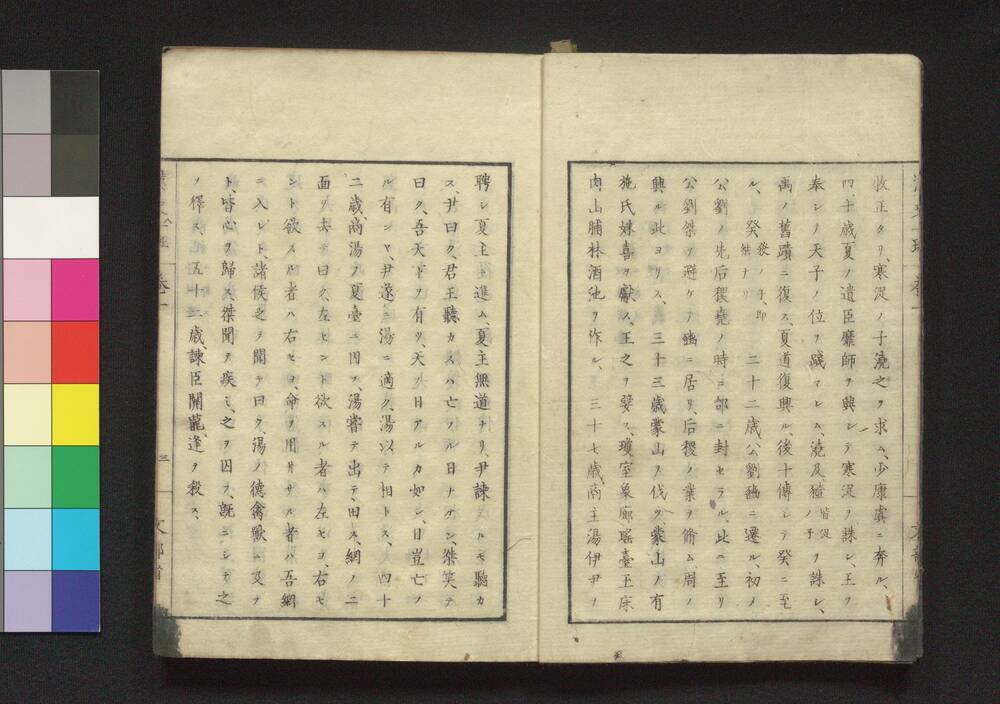 牧正タリ、寒浞ノ子澆之ヲ求ム、少康虞ニ奔ル、
四十歳夏ノ遺臣靡師ヲ興シテ寒浞ヲ誅シ、王ヲ
奉シノ天子ノ位ヲ踐マシム、澆及豷皆浞ノ子ヲ誅シ、
禹ノ舊蹟ニ復ス、夏道復興ル、後十傳シテ癸ニ至
ル、癸發ノ子、即桀ナリ二十二歳、公劉豳ニ遷ル、初メ
公劉ノ先后稷堯ノ時ニ邰ニ封セラル、此ニ至リ
公劉桀ヲ避ケテ豳ニ居リ、后稷ノ業ヲ脩ム、周ノ
興ル此ヨリス、三十三歳蒙山ヲ伐ツ、蒙山ノ有
施氏妺喜ヲ獻ス、王之ヲ嬖ス、瓊室象廊瑤臺玉床
肉山脯林酒池ヲ作ル、三十七歳、商主湯伊尹ヲ
聘シ夏主ニ進ム、夏主無道ナリ、尹諫ルモ聽カ
ス、尹曰ク、君王聽カスハ亡フル日ナケン、桀笑テ
曰ク、吾天下ヲ有ツ、天ノ日アルカ如シ、日豈亡ノ
ル有ンヤ、尹遂ニ湯ニ適ク、湯以テ相トス、四十
二歳、商湯ヲ夏臺ニ囚フ、湯嘗テ出テ、田ス、網ノ三
面ヲ去テ曰ク、左セント欲スル者ハ左セヨ、右セ
ント欲スル者ハ右セヨ、命ヲ用井サル者ハ吾網
ニ入レト、諸侯之ヲ聞テ曰ク、湯ノ德禽獸ニ及フ
ト、皆心ヲ歸ス、桀聞テ疾ミ、之ヲ囚フ、既ニシテ之
ノ釋ス、五十二歳、諫臣關龍逢ヲ殺ス、
三